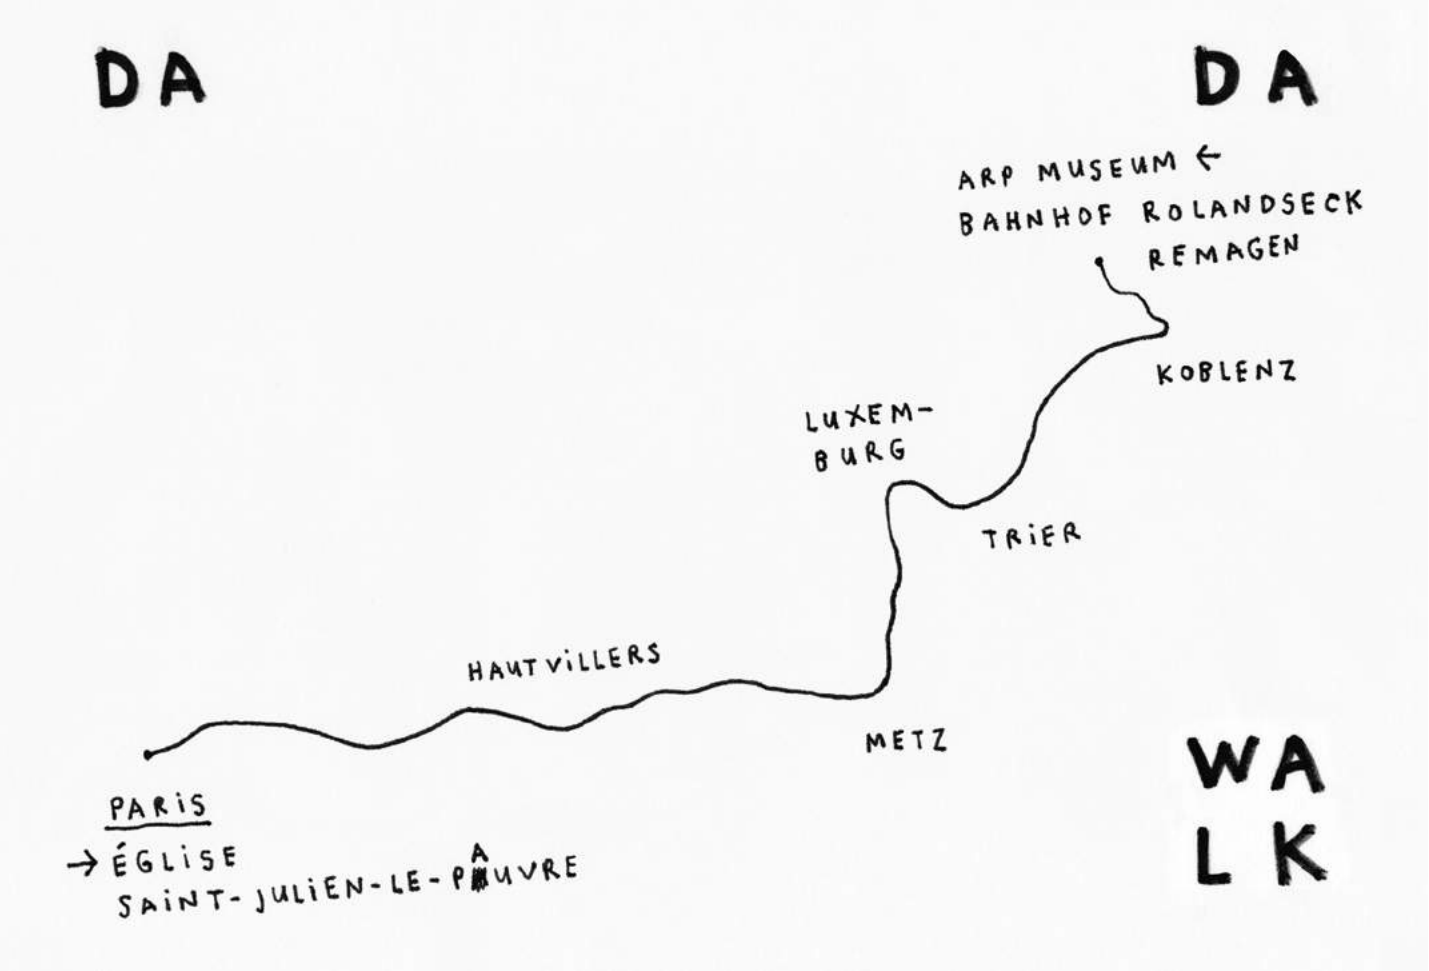 DA DA
ARP MUSEUM ←
BAHNHOF ROLANDSECK
REMAGEN
KOBLENZ
LUXEM-
BURG
TRiER
HAUTViLLERS
METZ
PARiS
→ ÉGLiSE
SAiNT-JULiEN-LE-PAUVRE
WA
LK